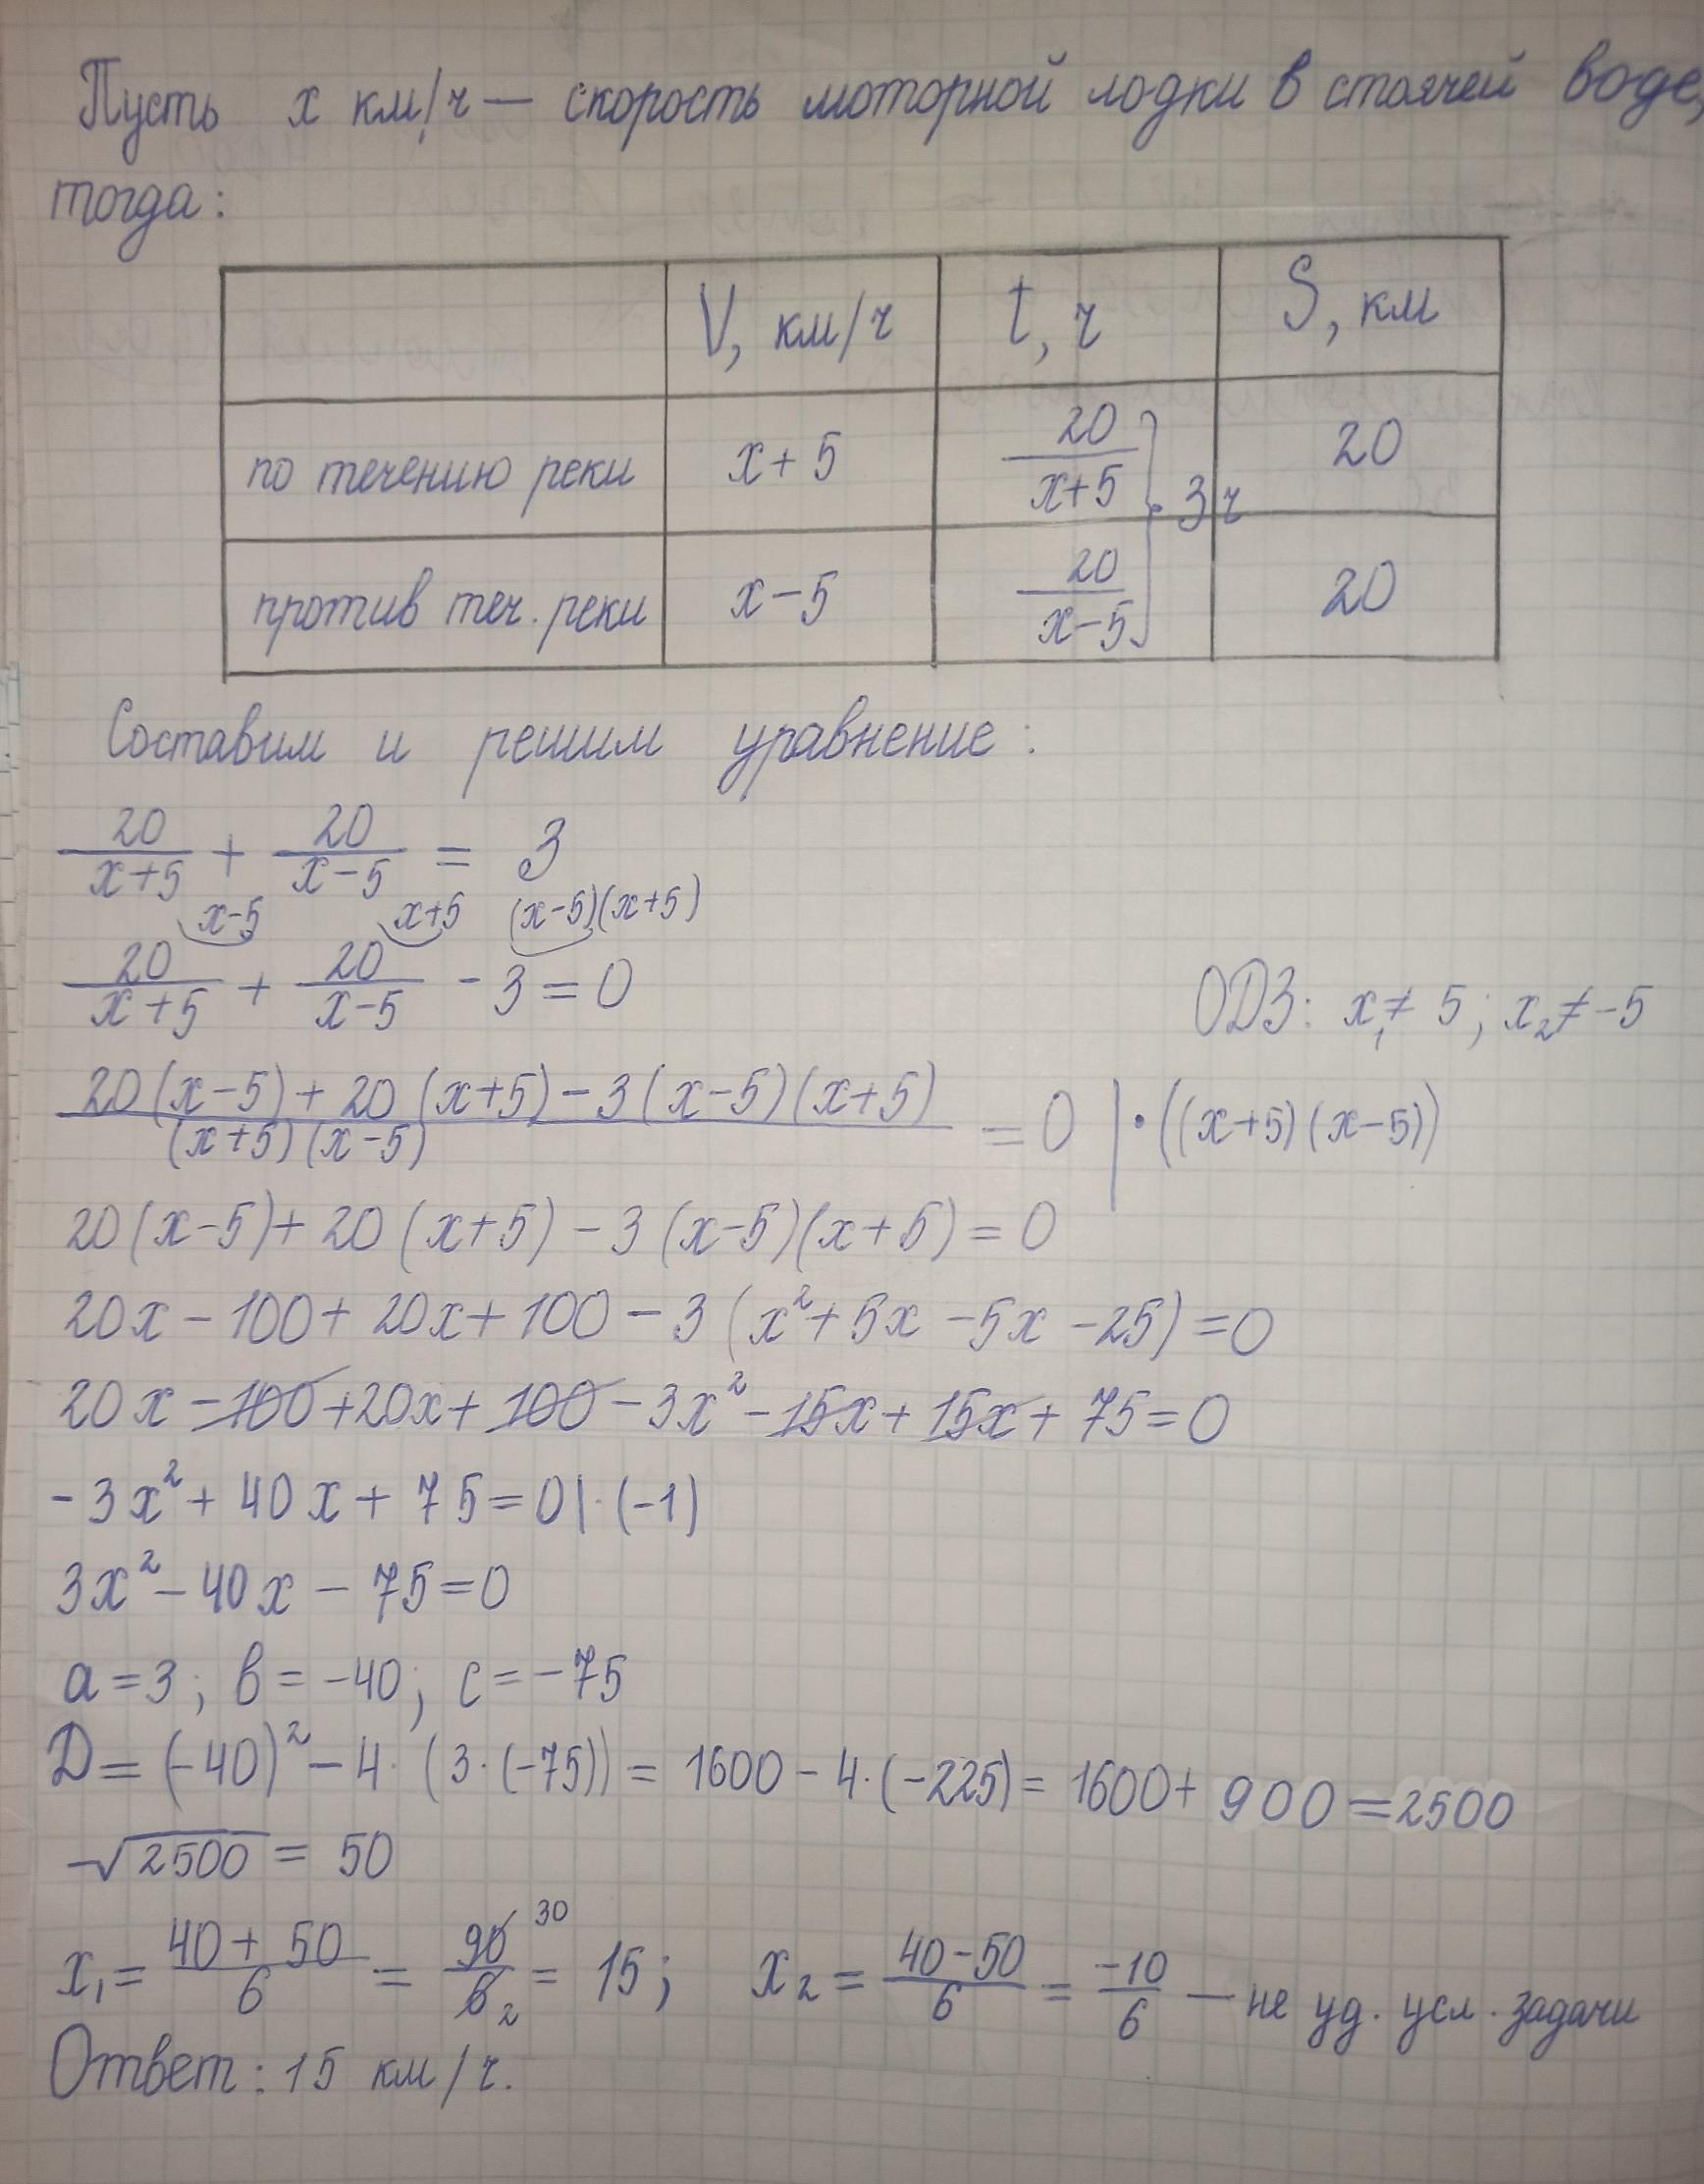 Пусть x км/ч — скорость моторной лодки в стоячей воде,
тогда:
V, км/ч t, ч S, км
по течению реки x+5 20/(x+5) 20
3 ч
против теч. реки x-5 20/(x-5) 20
Составим и решим уравнение:
20/(x+5) + 20/(x-5) = 3
x-5 x+5 (x-5)(x+5)
20/(x+5) + 20/(x-5) - 3 = 0
ОДЗ: x₁ ≠ 5; x₂ ≠ -5
(20(x-5)+20(x+5)-3(x-5)(x+5))/((x+5)(x-5)) = 0 | · ((x+5)(x-5))
20(x-5)+20(x+5)-3(x-5)(x+5)=0
20x-100+20x+100-3(x²+5x-5x-25)=0
20x-100+20x+100-3x²-15x+15x+75=0
-3x²+40x+75=0|·(-1)
3x²-40x-75=0
a=3; b=-40; c=-75
D=(-40)²-4·(3·(-75))=1600-4·(-225)=1600+900=2500
√2500=50
x₁=(40+50)/6=90/6 30 2=15; x₂=(40-50)/6=-10/6 — не уд. усл. задачи
Ответ: 15 км/ч.